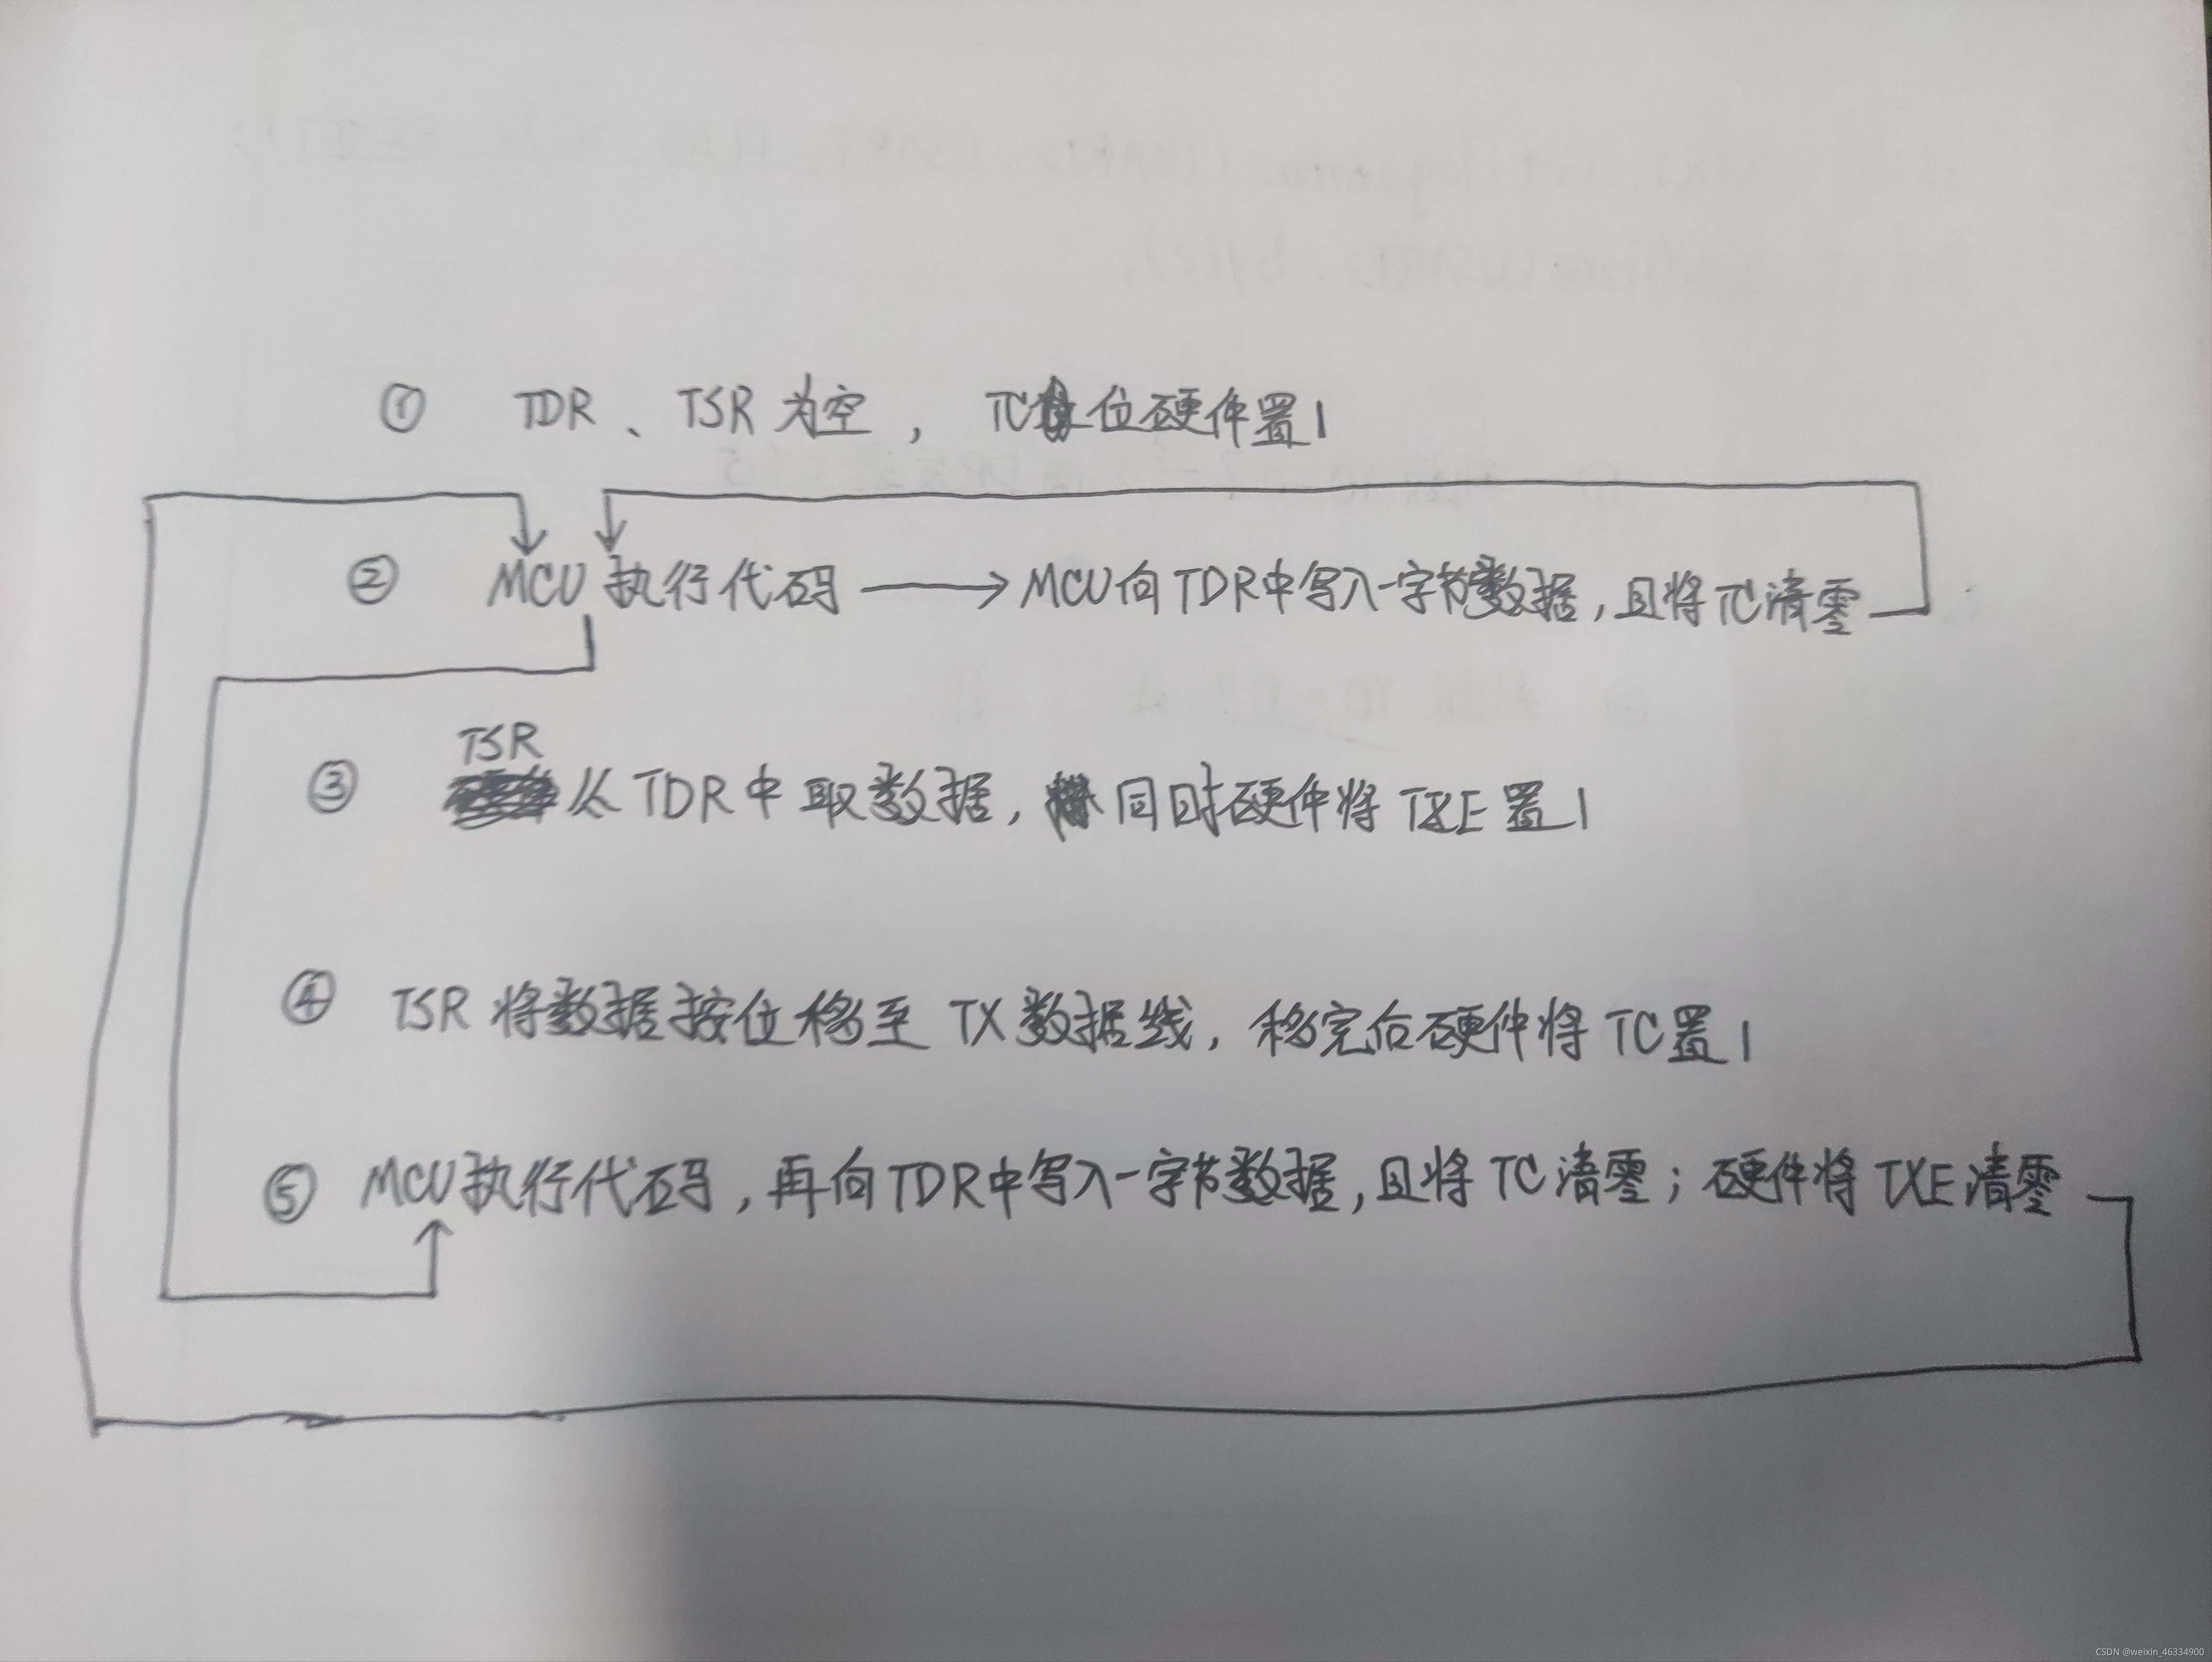 ① TDR、TSR为空，TC位硬件置1
② MCU执行代码 → MCU向TDR中写入一字节数据，且将TC清零
TSR
③ 从TDR中取数据，同时硬件将TXE置1
④ TSR将数据按位移至TX数据线，移完后硬件将TC置1
⑤ MCU执行代码，再向TDR中写入一字节数据，且将TC清零；硬件将TXE清零
CSDN @weixin_46334900